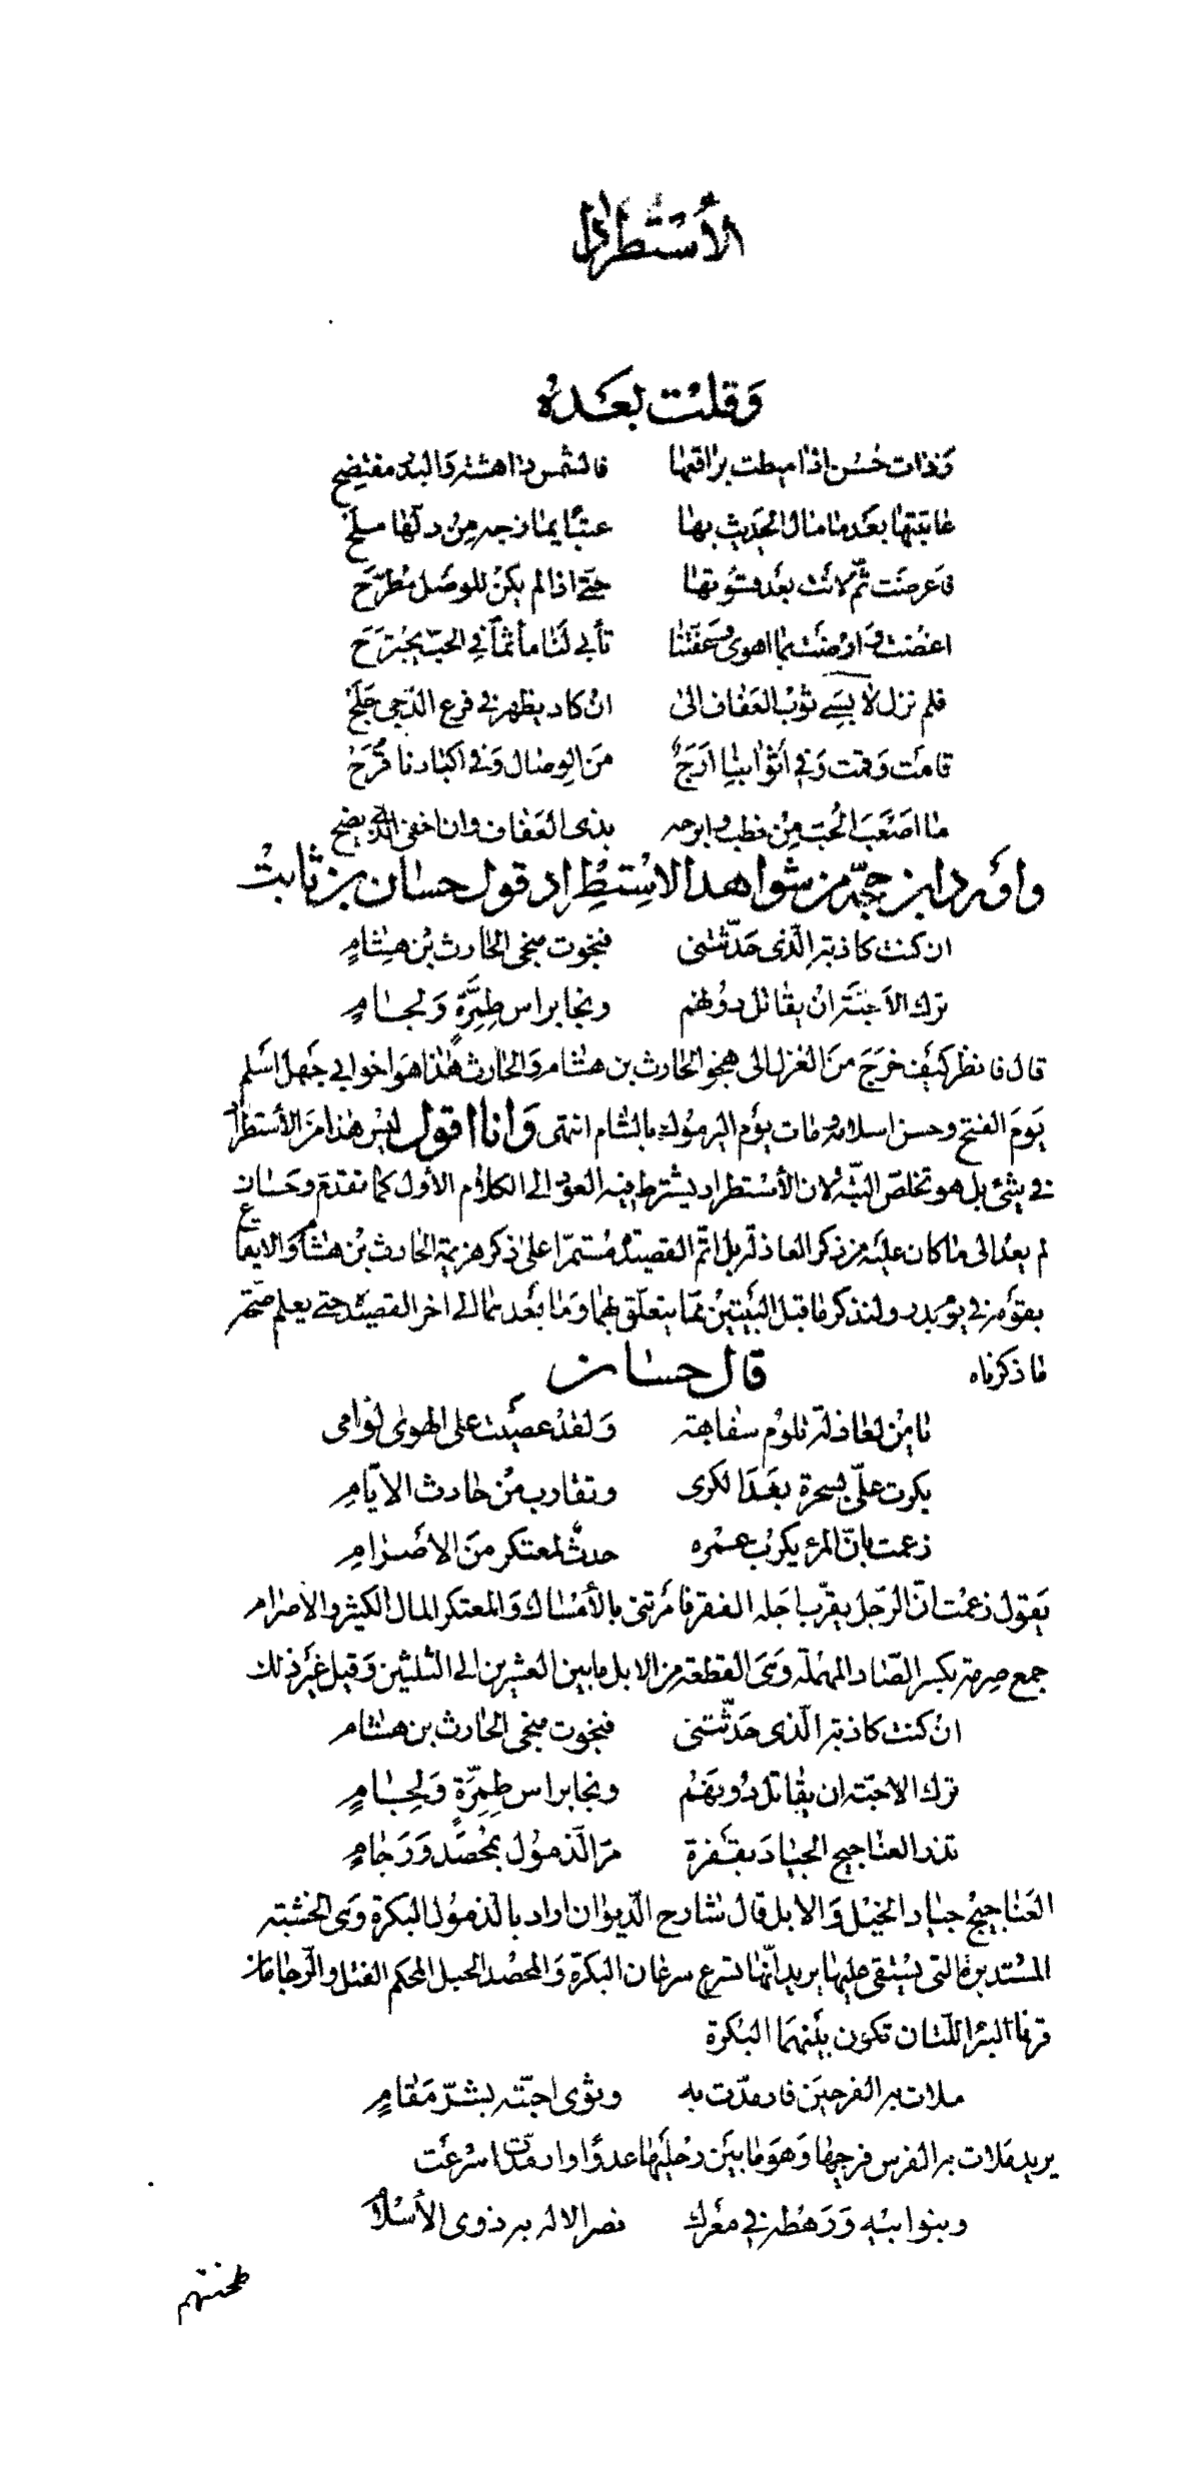 الأستطراد
وَقلت بعَده
وَذات حُسْن اذا ميطت براقعها فالشمس داهشة وَالبدر مفتضح
عاتبتها بعَد ما مال الحَديث بها عتبًا يمازجه مِنْ دلّها ملح
فاعرضت ثمّ لانت بعد قسوتها حتى اذا لم يكنْ للوصَل مُطّرَح
اغضت وَارضت بما اهوى وعفّتنا تأبى لنا مأثماً في الحبّ يجْترَحَ
فلم نزل لابسي ثوْب العَفاف الى انْ كاد يظهر في فرع الدّجى جَلَح
قامَت وَقمت وَفي أثْوابنا ارَجٌ مِنَ الوصال وَفي اكبادنا قُرَحُ
ما اصَعَبَ الحُبّ مِنْ خطب وابرحه بذى العَفاف وان اخفى الذى يضح
واوَرد ابن حجّة من شواهد الاسْتِطْراد قول حسان بن ثابتْ
ان كنت كاذبة الّذى حَدّثتنى فنجوت منجى الحارث بْن هِشامٍ
ترك الاحبّة انْ يقاتل دونهم ونجا براس طِمِرَّةٍ وَلجامٍ
قال فانظر كيْف خرَجَ منَ الغزل الى هجو الحارث بن هشام وَالحارث هٰذا هوَ اخو ابي جَهل اسَلم
يَوْمَ الفتح وحسن اسلامه ومات يوْم اليرموْك بالشام انتهى وَانا اقول ليْس هٰذا منَ الأستطراد
في شيْ بل هو تخلصّ البتّة لان الأسْتطراد يشترط فيه العود الى الكلام الأول كما تقدم وحَسان
لم يعُد الى ما كان عليْه من ذكر العاذلة بل اتمّ القصيْدة مُستمرّا على ذكر هزيمة الحارث بْن هشام وَالايقاع
بقوْمه في يوْم بدر ولنذكر ما قبل البَيْتيْن ممّا يتعلّق بهما وَما بعْدهما الى اخر القصيْدة حتى يعلم صحّة
ما ذكرناه قال حسان
يا مِنْ لعاذلة تلوْم سَفاهة وَلقدْ عصيْت على الهوىٰ لوّامى
بكرت علىّ بسحرة بعَد الكرى وتقارب مْن حادث الايّامِ
زعمت بانّ المرْء يكربْ عمْره حدثٌ لمعتكر منَ الاصْرامِ
يَقول زعمْت انّ الرجَل يقرّب اجَله الفقر فامَرتنى بالأمْساك وَالمعتكر المال الكثير والاصْرام
جمع صِرمة بكسر الصّاد المهْملة وَهىَ القطعة من الابل ما بين العشرين الى الثلثيْن وَقيل غيْر ذلك
انْ كنت كاذبة الّذى حَدّثتنى فنجوت منجى الحارث بن هشام
ترك الاحبّة ان يقاتل دُونهَمْ ونجا براس طِمِرَّةٍ وَلِجامٍ
تذر العناجيج الجيادَ بقَفرة مرّ الذّمول بمُحْصَدٍ وَرَجامٍ
العَناجيْج جياد الخيْل وَالابل قال شارح الدّيوان اراد بالذموْل البكرة وَهى الخشبة
المسْتديرة التى يسْتقى عليها يريد انّها تسرع سرعان البكرة وَالمحصْد الحبل المحكم الفتل والرّجامان
قرنا البئر اللّتان تكون بيْنهمَا البَكرة
ملات به الفرجيَن فارمدّت به وثوى احبّته بشرّ مَقامٍ
يريد مَلات به الفرس فرجيها وَهوَ ما بيَن رجْليْها عدوًا وارمدّت اسْرعَت
وبنو ابيْه وَرَهْطه في معْرك نصر الاله به ذوى الأسْلام
طحنتهم